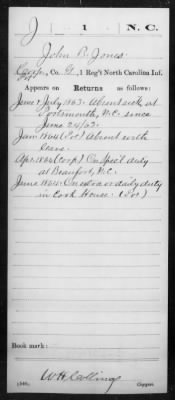 J 1 N.C.
John R. Jones
Corp., Co. G, 1 Reg't North Carolina Inf.
Appears on Returns as follows:
June & July 1863. Absent sick at
Portsmouth, N.C. since
June 24/63.
Jan 1864 (Pvt) Absent with
leave.
Apr. 1864 (Corp) On Spec'l duty
at Beaufort, N.C.
June 1864. On extra or daily duty
in Cook House. (Pvt)
Book mark:
(546)
Copyist.